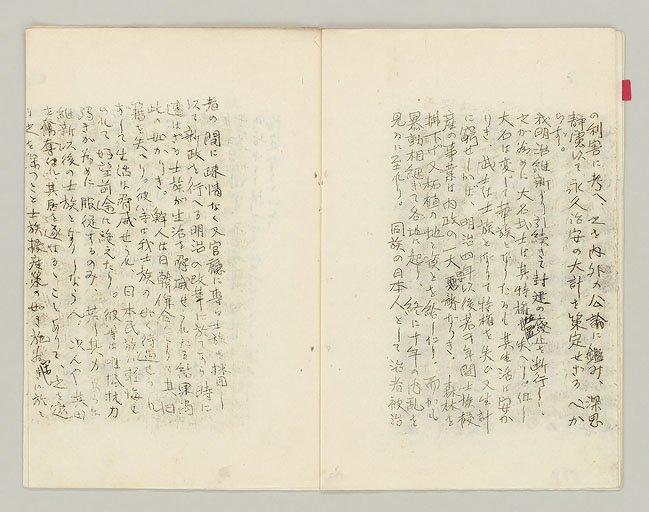 の利害に考へ、之を内外の公論に鑑み、深思
静慮以て永久治安の大計を策定せざるべか
らず。
我明治維新より引続きて封建の廃止を断行し、
之が為めに大名武士は其特権を失へり。但し
大名は変じて華族となりたるも其生活に安か
りき、武士は士族となりて特権を失ひ又生計
に窮せしかば、明治四年以後若干年間士族授
産の事業は内政の一大要務なりき、森林を
拂下げ又柘植の地と資を給したり 而かも
暴動相継ぎて各地に起り、終に十年の内乱を
見るに至れり。同族の日本人として治者被治
者の間に疎情なく又官職に専ら士族を採用し
以て新政を行へる明治の改革に於てすら時に
適はざる士族が生活を脅威せられたる結果尚
此の如かりき。鮮人は日韓併合によりて其国
籍を失へり、彼等は我士族の如く待遇せられ
ずして生活は脅威せられ、日本民族に軽侮せ
られて 前途に 彼等は 抵抗力
弱きが為めに服従するのみ、
維新以後の士族となりしならん、況んや其田
を 其居を ことありて、之を遠
之を 士族授産策の如き